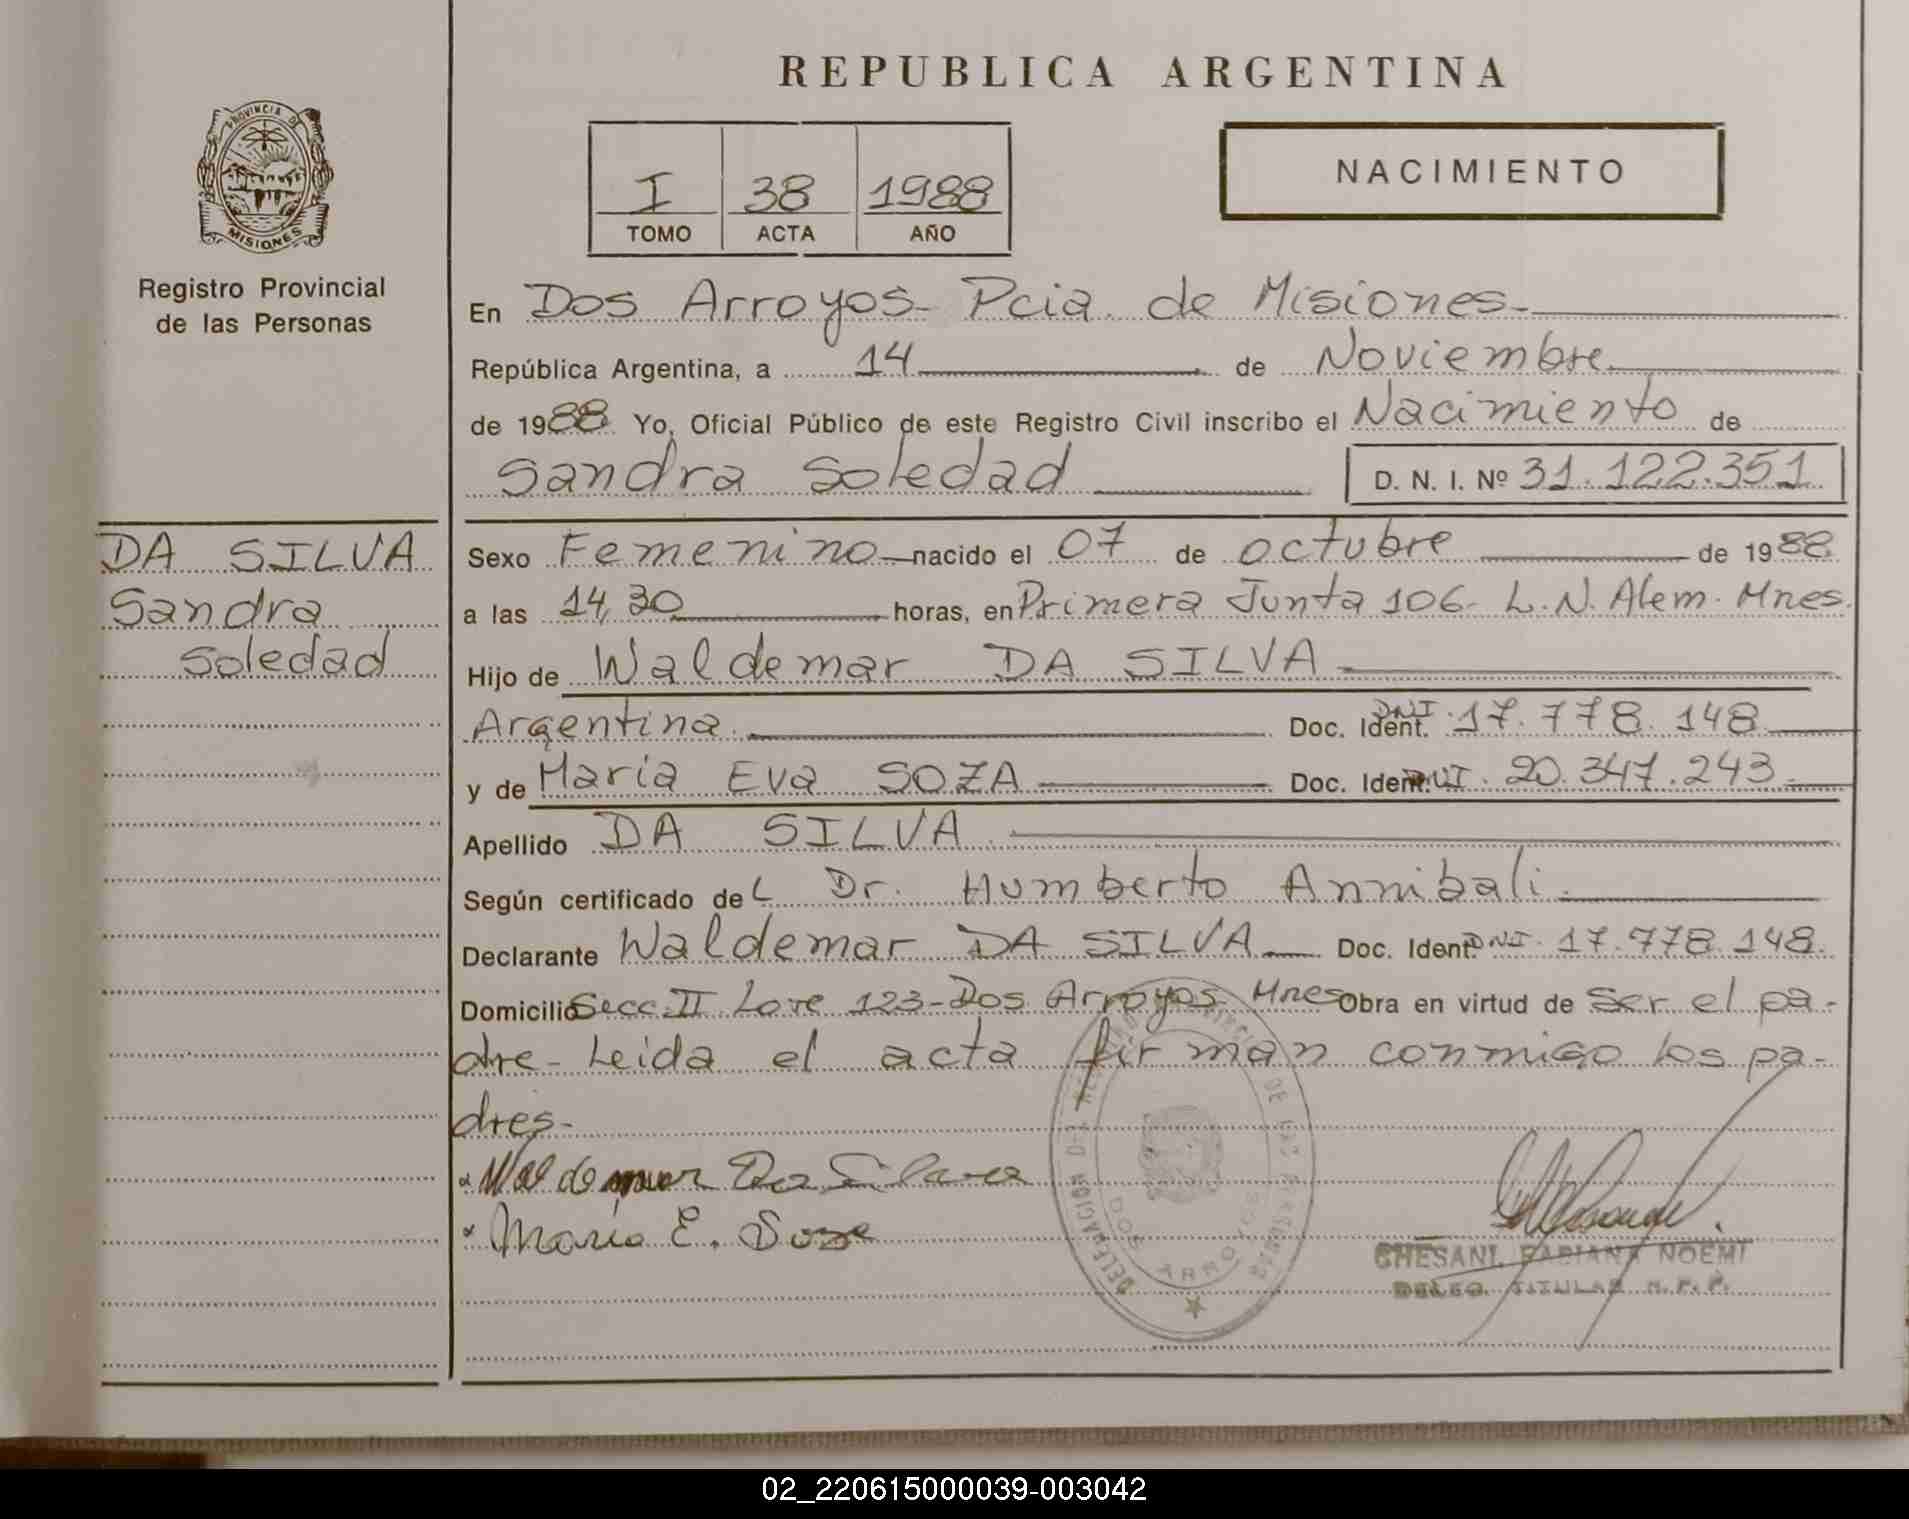 REPUBLICA ARGENTINA
PROVINCIA DE
MISIONES
Registro Provincial
de las Personas
I 38 1988
TOMO ACTA AÑO
NACIMIENTO
En Dos Arroyos- Pcia. de Misiones-
República Argentina, a 14 de Noviembre
de 1988 Yo, Oficial Público de este Registro Civil inscribo el Nacimiento de
Sandra Soledad D. N. I. Nº 31.122.351
DA SILVA
Sandra
Soledad
Sexo Femenino nacido el 07 de octubre de 1988
a las 14,30 horas, en Primera Junta 106- L.N. Alem. Mnes.
Hijo de Waldemar DA SILVA
Argentina Doc. Ident. DNI 17.778.148
y de María Eva SOZA Doc. Ident. DNI. 20.347.243
Apellido DA SILVA
Según certificado del Dr. Humberto Annibali.
Declarante Waldemar DA SILVA Doc. Ident. DNI. 17.778.148.
Domicilio Secc. II Lote 123- Dos Arroyos Mnes Obra en virtud de ser el pa-
dre- Leida el acta firman conmigo los pa-
dres-
Waldemar Da Silva
María E. Soza
DELEGACION
DE LAS PERSONAS
DOS ARROYOS
CHESANI, FABIANA NOEMI
DELEG. TITULAR R. P. P.
02_220615000039-003042